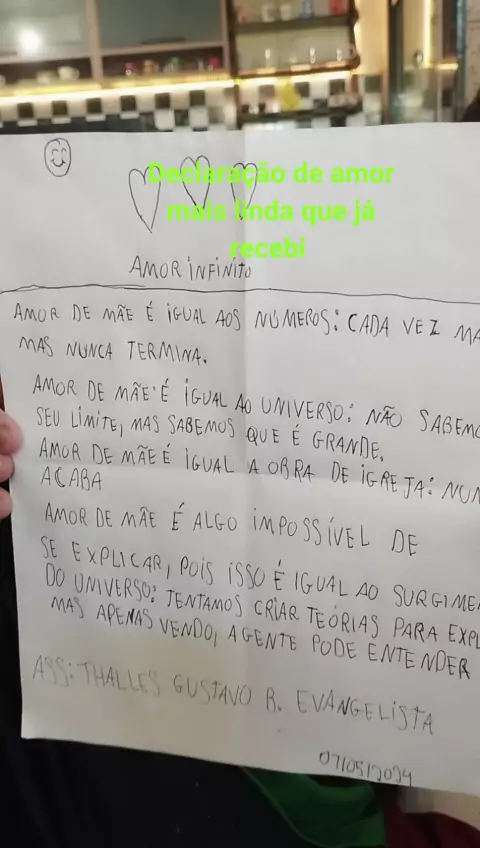 Declaração de amor
mais linda que já
recebi
AMOR INFINITO
AMOR DE MÃE É IGUAL AOS NÚMEROS: CADA VEZ MA
MAS NUNCA TERMINA.
AMOR DE MÃE É IGUAL AO UNIVERSO: NÃO SABEMO
SEU LÍMITE, MAS SABEMOS QUE É GRANDE.
AMOR DE MÃE É IGUAL A OBRA DE IGREJA: NUN
ACABA
AMOR DE MÃE É ALGO IMPOSSÍVEL DE
SE EXPLICAR, POIS ISSO É IGUAL AO SURGIME
DO UNIVERSO: TENTAMOS CRIAR TEÓRIAS PARA EXPL
MAS APENAS VENDO, AGENTE PODE ENTENDER
ASS: THALLES GUSTAVO R. EVANGELISTA
07/05/2024